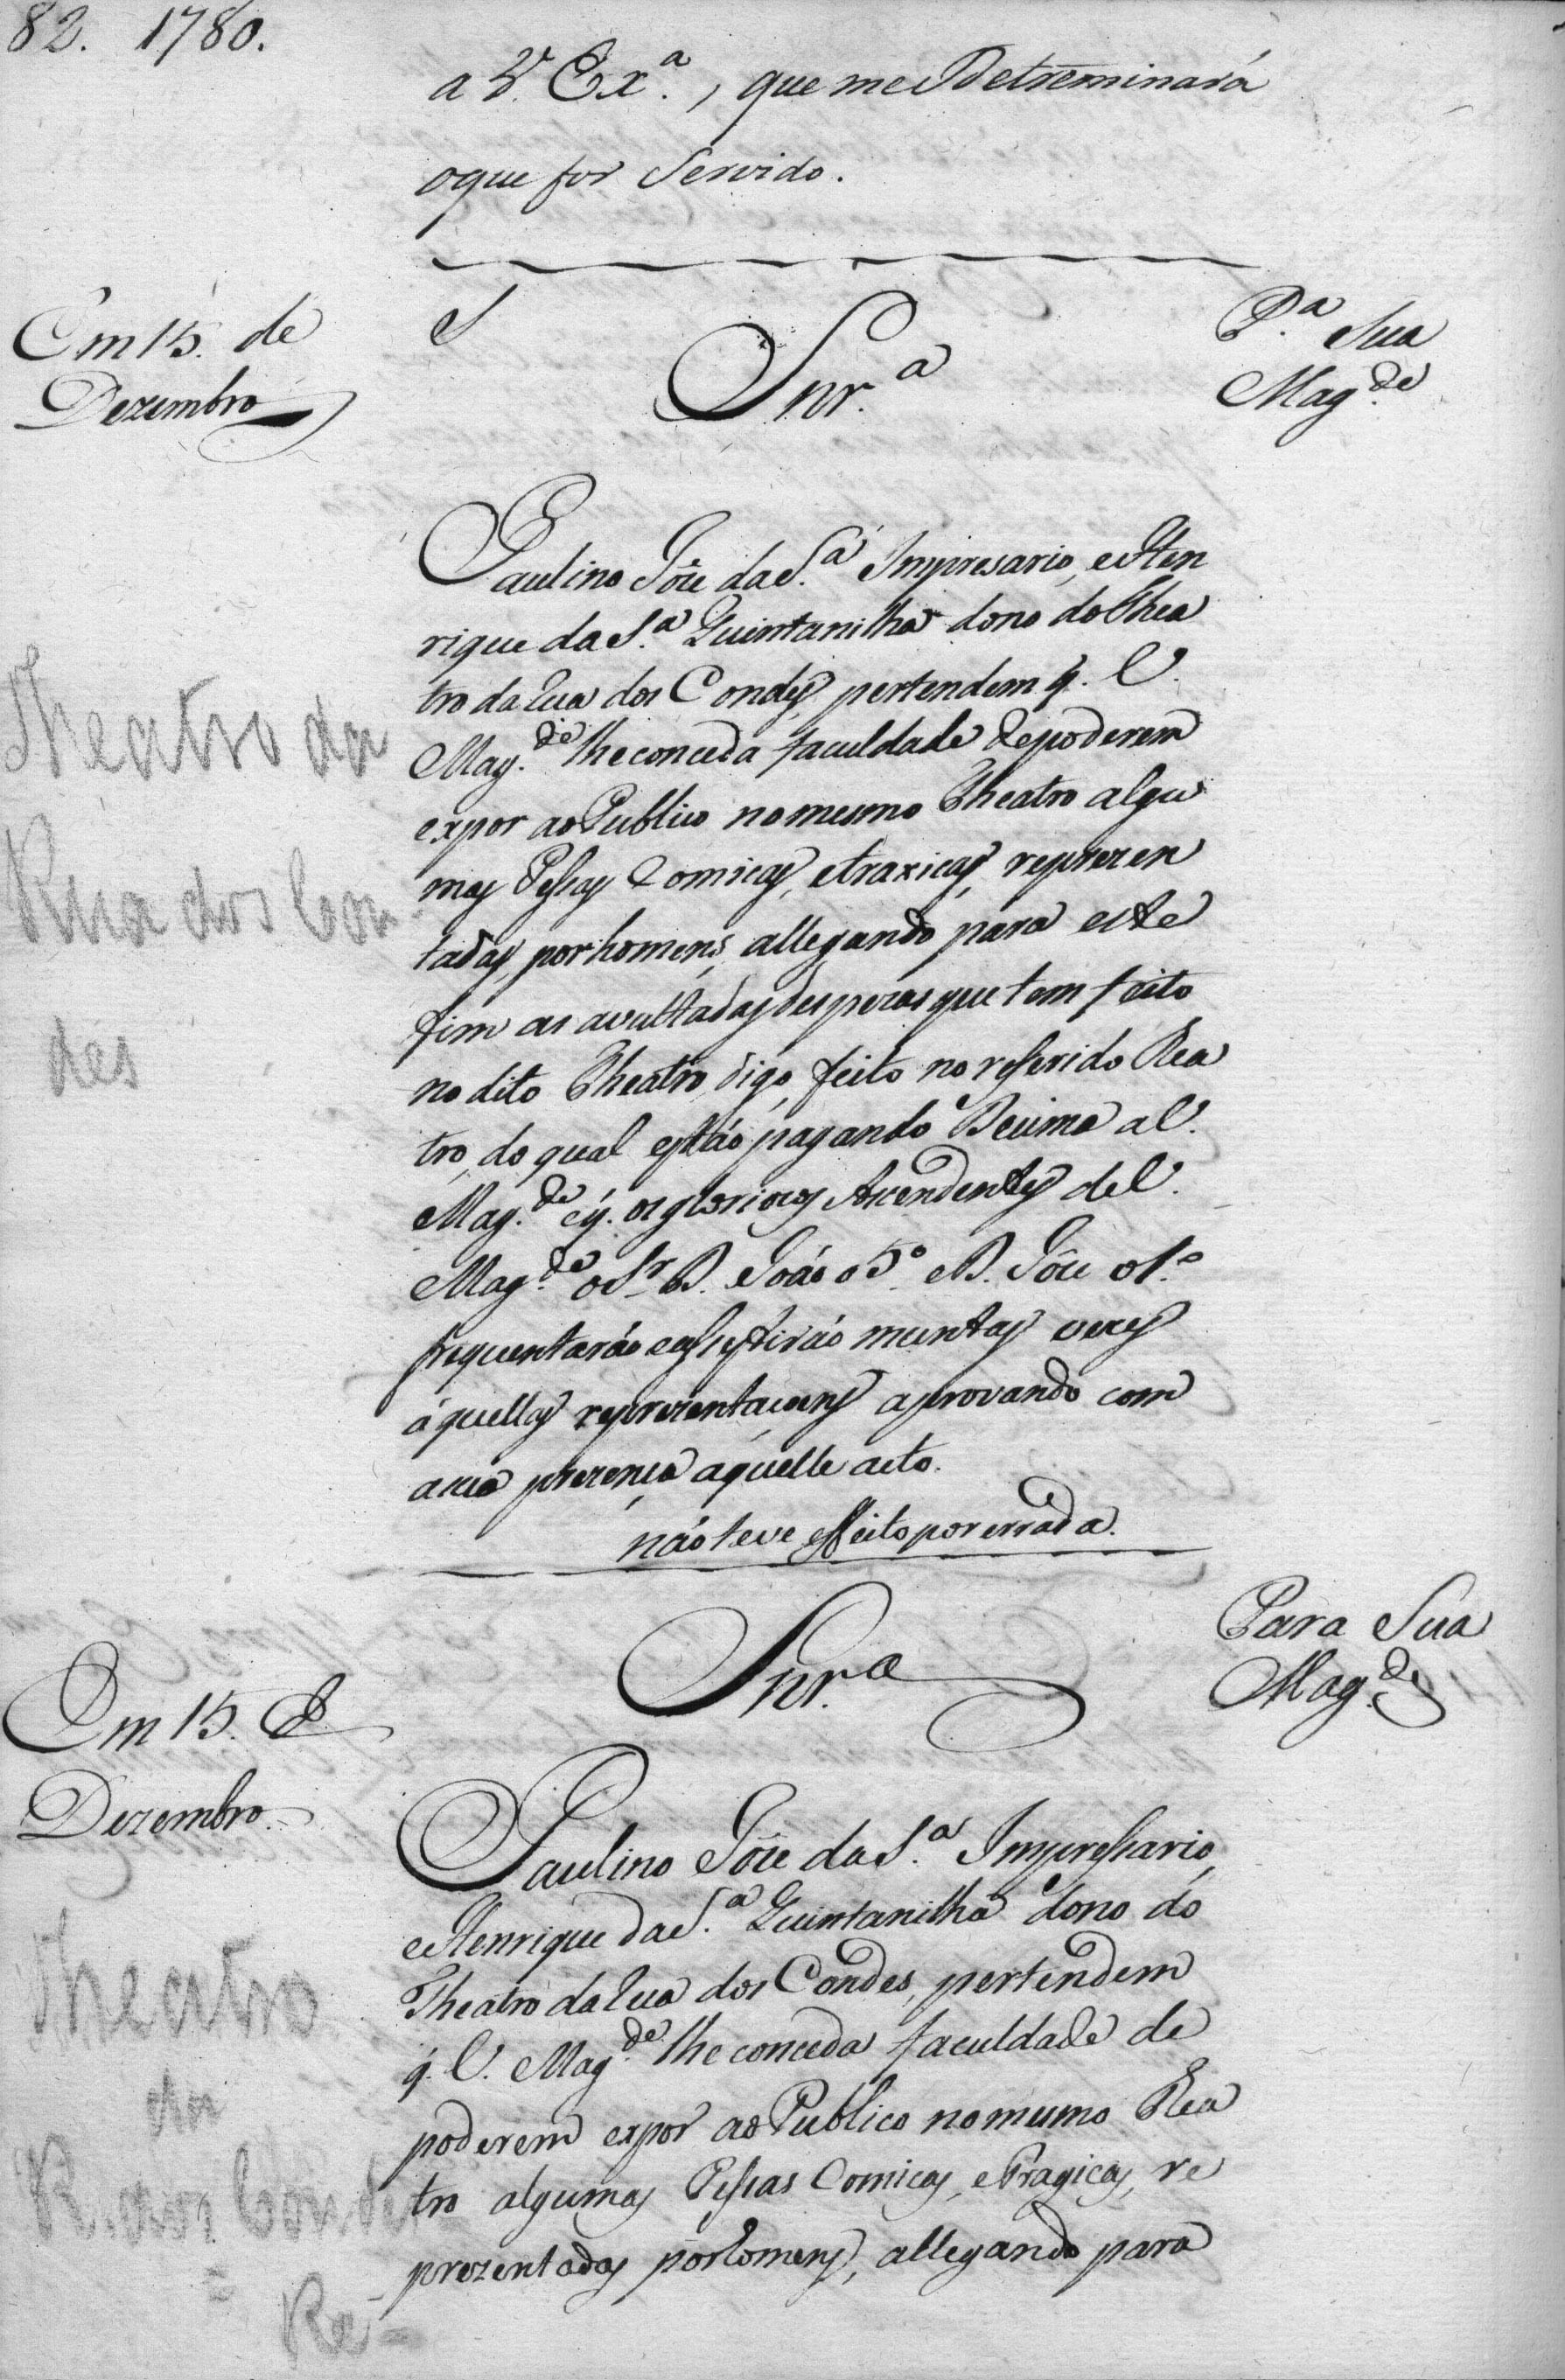 82. 1780.
a V. Ex.ª, que me Detreminará
oque for Servido.
Em 15. de
Dezembro
Snr.ª
P.ª Sua
Mag.de
Paulino Jôze da S.ª Impresario, e Hen
rique da S.ª Quintanilha dono do Thea
tro da Rua dos Condes, pertendem q. V.
Mag.de lhe conceda faculdade de poderem
expor ao Publico no mesmo Theatro algu
mas Pessas Comicas, e traxicas, reprezen
tadas, por homens, allegando para este
fim as avultadas despezas que tem feito
no dito Theatro, digo, feito no referido Rea
tro, do qual estão pagando Decima a V.
Mag.de e q. os gloriozos Ascendentes de V.
Mag.de o Sr. D. João o 5.º e D. Jôze o 1.º
frequentarão e assistirão muntas vezes
áquellas reprezentaçoens aprovando com
a sua prezença aquelle acto.
não teve effeito por errada.
Snr.ª
Para Sua
Mag.de
Em 15. de
Dezembro.
Paulino Jôze da S.ª Impressario,
e Henrique da S.ª Quintanilha dono do
Theatro da Rua dos Condes, pertendem
q. V. Mag.de lhe conceda faculdade de
poderem expor ao Publico no mesmo Rea
tro algumas Pessas Comicas, e Tragicas, re
prezentadas por homens, allegando para
Theatro da
Rua dos Con-
des
Theatro
da
R. dos Conde-
=
Re-